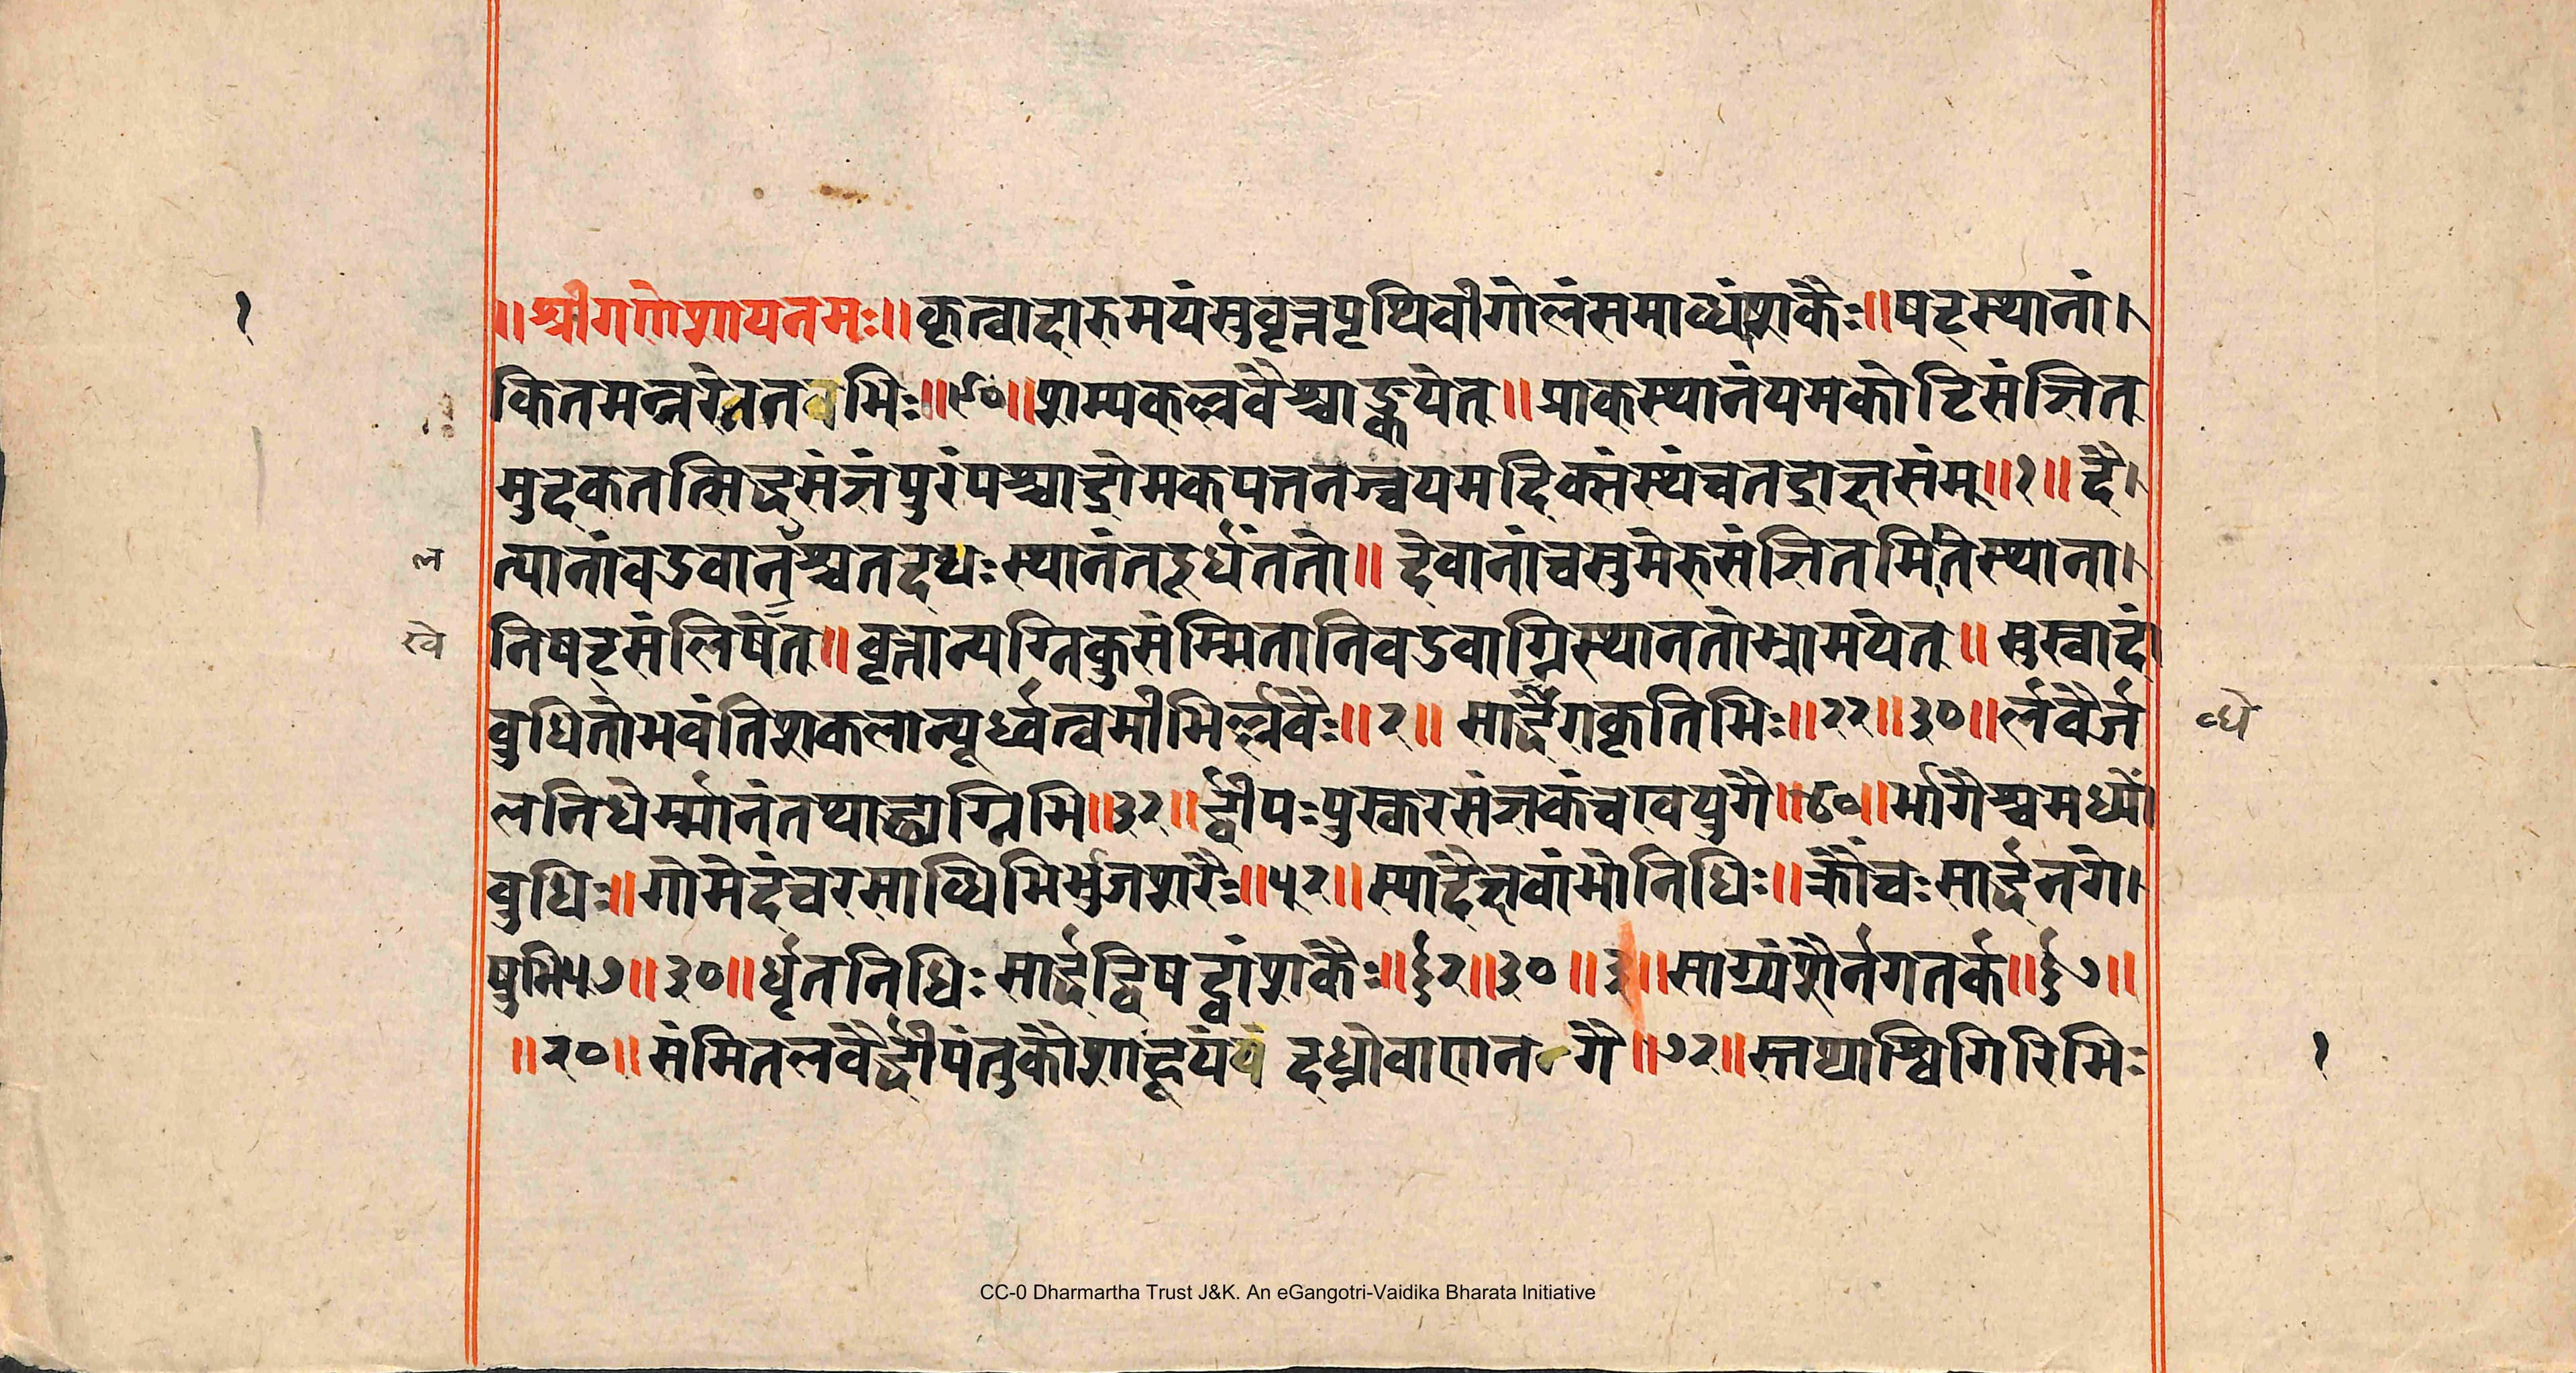 १
॥श्रीगणेशायनमः॥कृत्वादारुमयंसुवृत्तपृथिवीगोलंसमाव्ध्यंशकैः॥षट्स्थानां।
कितमन्तरेनतवभिः॥९०॥शम्यकल्लवैश्चाङ्कयेत्॥प्राक्स्थानंयमकोटिसंज्ञित
मुदकतत्सिद्धसंज्ञंपुरंपश्चाद्रोमकपत्तनञ्चयमदिक्संस्थंचतद्राक्षसंम्॥१॥दै।
ल
त्यानांवडवानश्चतदधःस्थानंतदूर्धंततो॥देवानांचसुमेरुसंज्ञितमितिस्थाना।
खे
निषट्संलिषेत्॥वृत्तान्यग्निकुसंम्मितानिवडवाग्निस्थानतोभ्रामयेत्॥सुस्वादं।
वुधितोभवंतिशकलान्यूर्ध्वत्वमीभिर्ल्लवैः॥२॥सार्द्धैगकृतिभिः॥२२॥३०॥र्लवैर्ज
व्धे
लनिधेर्म्मानंतथाद्व्यग्निभि॥३२॥र्द्वीपःपुस्करसंज्ञकंचखयुगै॥४०॥र्भागैश्चमध्यें।
वुधिः॥गोमेदंचरसाव्धिभिर्भुजशरैः॥५२॥स्यादैक्षवांभोनिधिः॥क्रौंचःसार्द्धनगे।
षुभि५७॥३०॥र्धृतनिधिःसार्द्धद्विषद्वांशकैः॥६२॥३०॥३॥साग्र्यंशैर्नगतर्क॥६७॥
॥२०॥संमितलवैर्द्वीपंतुकौशाह्वयं दध्नोवाणनगै॥७२॥स्तथाश्विगिरिभिः
१
CC-0 Dharmartha Trust J&K. An eGangotri-Vaidika Bharata Initiative